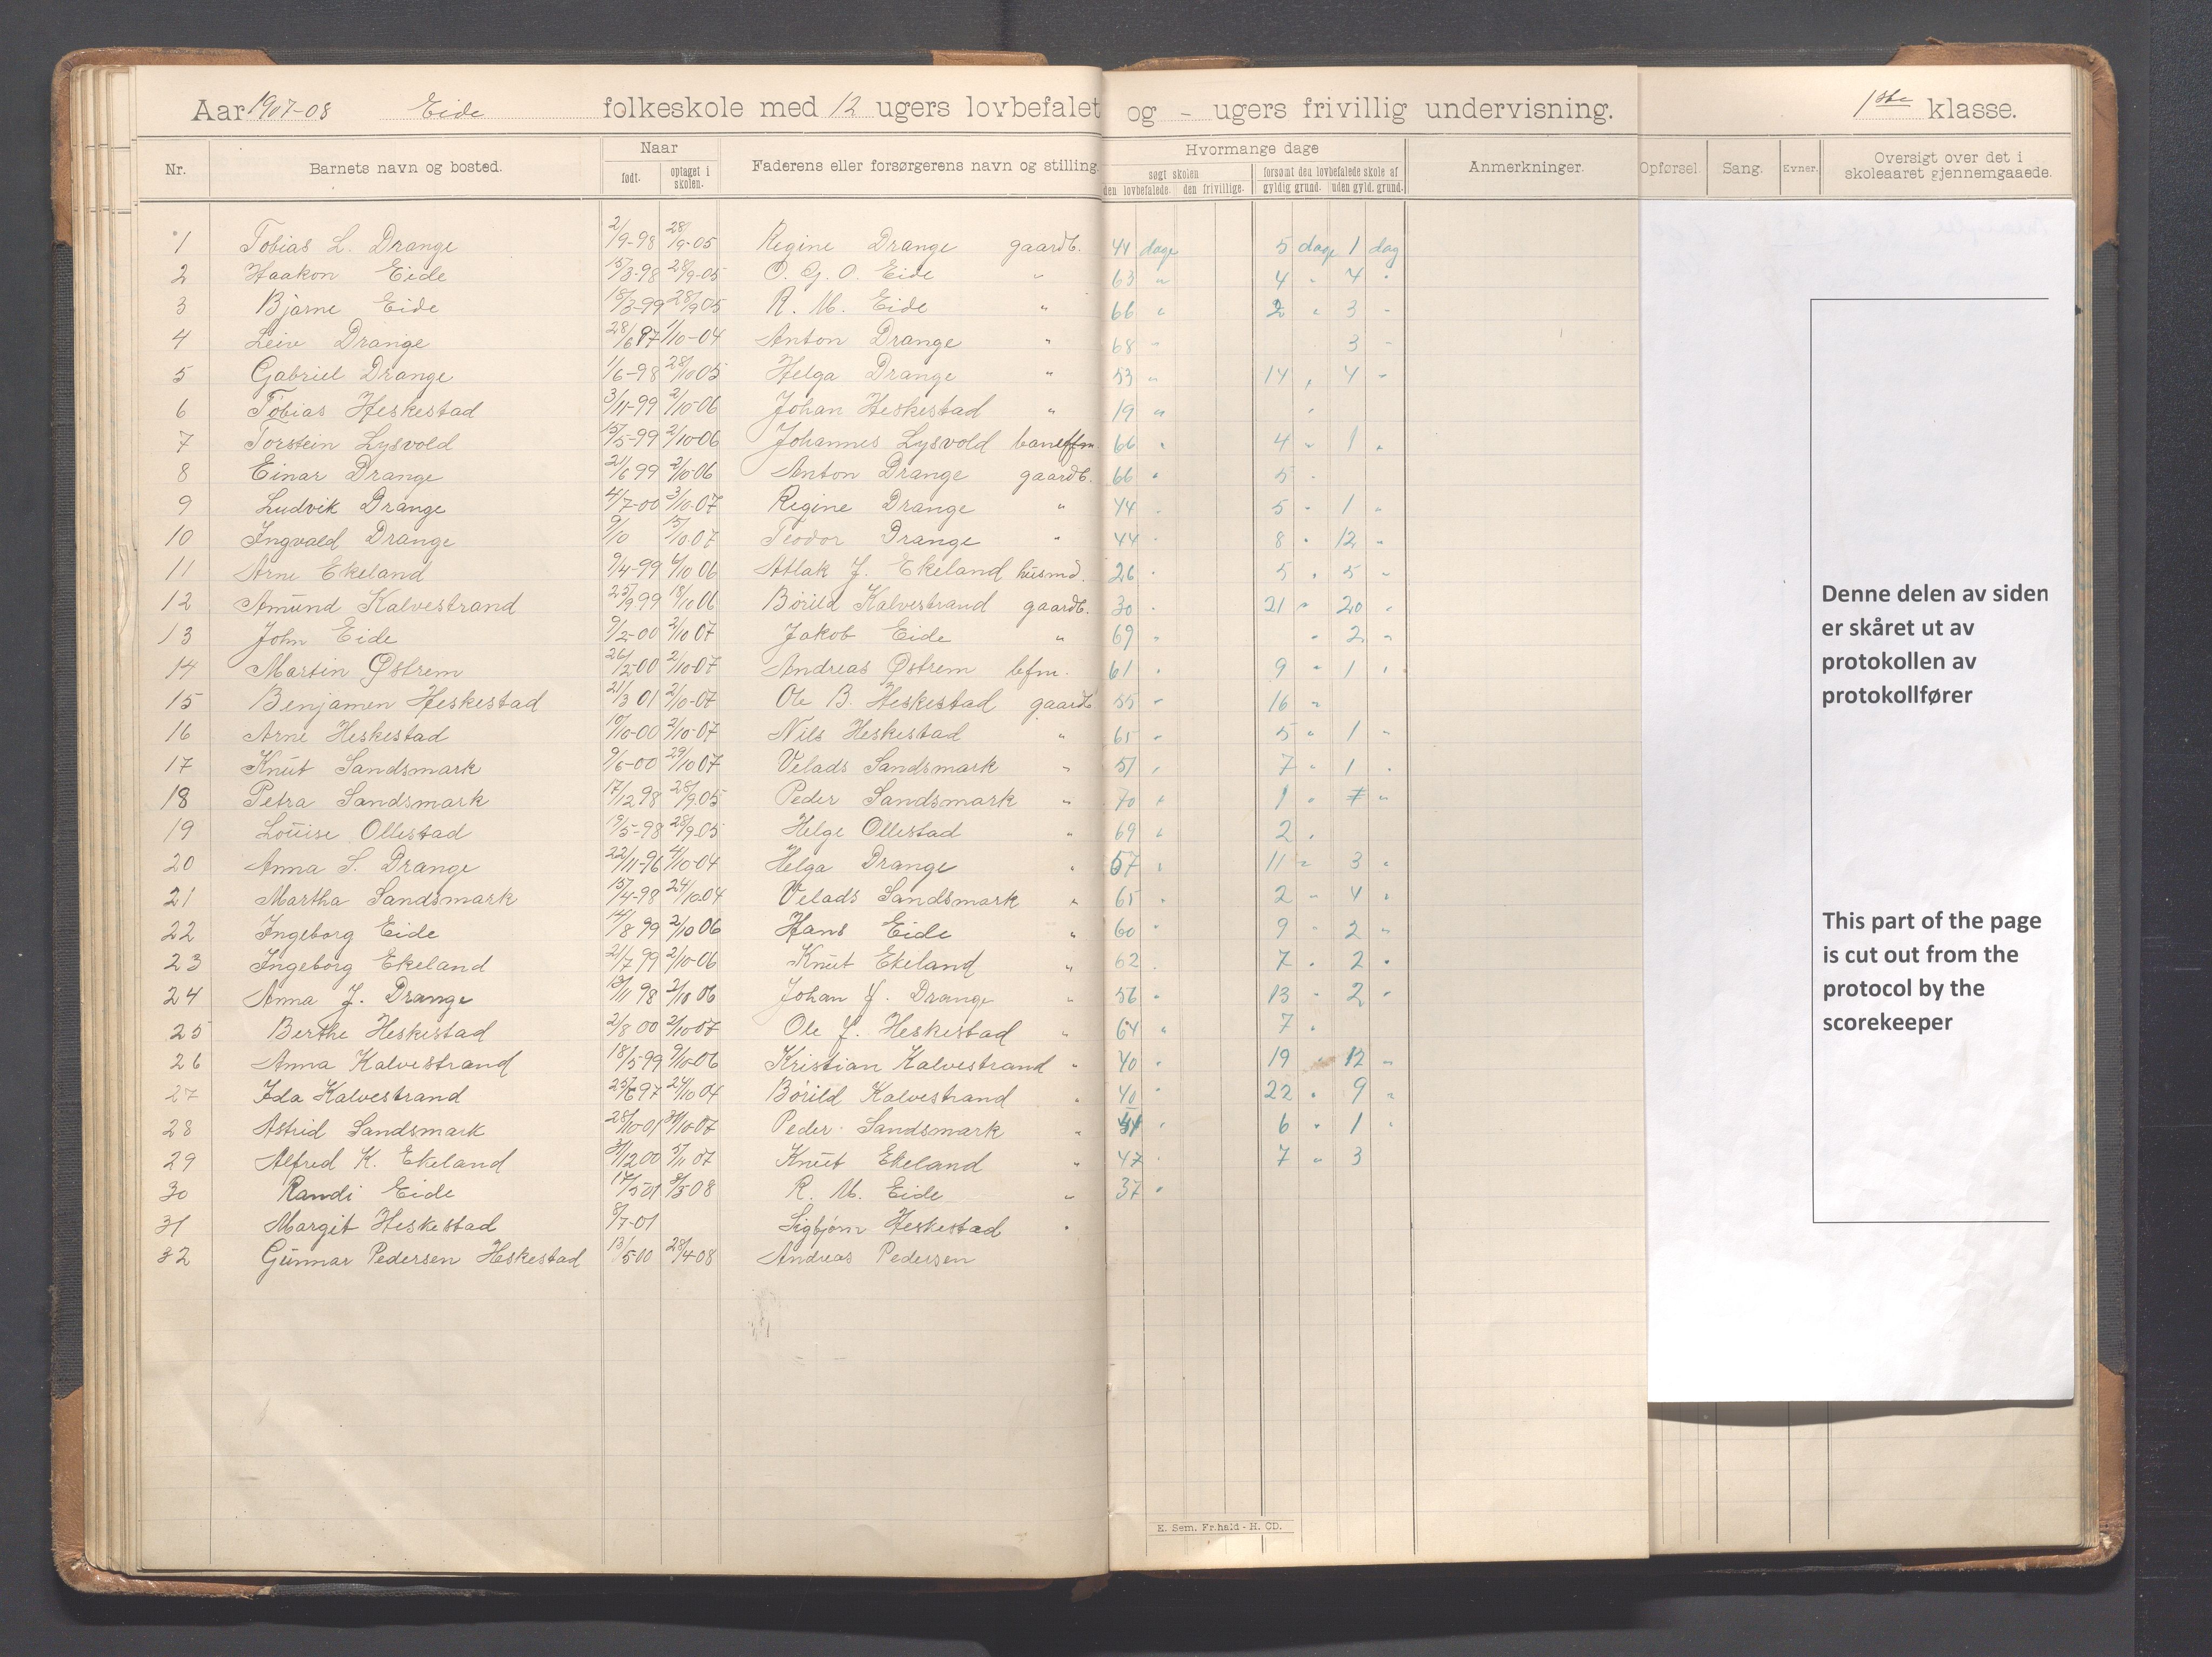 Aar 1907-08 Eide folkeskole med 12 ugers lovbefalet og - ugers frivillig undervisning. 1ste klasse.
Nr. Barnets navn og bosted. Naar født. optaget i skolen. Faderens eller forsørgerens navn og stilling. Hvormange dage søgt skolen den lovbefalede. den frivillige. forsømt den lovbefalede skole af gyldig grund. uden gyld. grund. Anmerkninger. Opførsel. Sang. Evner. Oversigt over det i skoleaaret gjennemgaaede.
1 Tobias L. Drange 2/9-98 28/9-05 Regine Drange gaardb. 44 dage 5 dage 1 dag
2 Haakon Eide 15/3-98 28/9-05 O. G. O. Eide " 63 " 4 " 4 "
3 Bjarne Eide 18/3-99 28/9 05 R. M. Eide " 66 " 2 " 3 "
4 Leiv Drange 28/6 97 1/10-04 Anton Drange " 68 " 3 "
5 Gabriel Drange 1/6-98 28/10 05 Helga Drange " 53 " 14 " 4 "
6 Tobias Heskestad 3/11-99 2/10-06 Johan Heskestad " 19 " "
7 Torstein Lysvold 15/5-99 2/10-06 Johannes Lysvold 66 " 4 " 1 "
8 Einar Drange 21/6 99 2/10-06 Anton Drange gaardb. 66 " 5 "
9 Ludvik Drange 4/7-00 3/10-07 Regine Drange " 44 " 5 " 1 "
10 Ingvald Drange 9/10 15/10.07 Teodor Drange " 44 " 8 " 12 "
11 Arne Ekeland 9/4-99 9/10 06 Atlak J. Ekeland husmd. 26 " 5 " 5 "
12 Amund Kalvestrand 25/9 99 18/10 06 Børild Kalvestrand gaardb. 30 " 21 " 20 "
13 John Eide 9/2-00 2/10 07 Jakob Eide " 69 " " 2 "
14 Martin Østrem 26/2-00 2/10-07 Andreas Østrem bfm. 61 " 9 " 1 "
15 Benjamen Heskestad 21/3 01 2/10-07 Ole B. Heskestad gaardb 55 " 16 "
16 Arne Heskestad 10/10-00 2/10-07 Nils Heskestad " 65 " 5 " 1 "
17 Knut Sandsmark 9/6-00 29/10 07 Velads Sandsmark " 51 " 7 " 1 "
18 Petra Sandsmark 17/12 98 28/9.05 Peder Sandsmark " 70 " 1 " 7 "
19 Louise Ollestad 19/5-98 28/9-05 Helge Ollestad " 69 " 2 "
20 Anna S. Drange 22/11-96 4/10-04 Helga Drange " 57 " 11 " 3 "
21 Martha Sandsmark 15/4-98 24/10.04 Velads Sandsmark " 65 " 2 " 4 "
22 Ingeborg Eide 14/8 99 2/10 06 Hans Eide " 60 " 9 " 2 "
23 Ingeborg Ekeland 21/7 99 2/10-06 Knut Ekeland " 62 " 7 " 2 "
24 Anna J. Drange 13/11 98 2/10 06 Johan J. Drange " 56 " 13 " 2 "
25 Berthe Heskestad 2/8 00 2/10 07 Ole J. Heskestad " 64 " 7 "
26 Anna Kalvestrand 18/5-99 9/10-06 Kristian Kalvestrand " 40 " 19 " 12 "
27 Ida Kalvestrand 25/6 97 24/10 04 Børild Kalvestrand " 40 " 22 " 9 "
28 Astrid Sandsmark 28/10-01 31/10-07 Peder Sandsmark " " 6 " 1 "
29 Alfred K. Ekeland 31/12 00 5/11 07 Knut Ekeland " 47 " 7 " 3
30 Randi Eide 17/5 01 8/5 08 R. M. Eide " 37 "
31 Margit Heskestad 8/7-01 Sigbjørn Heskestad "
32 Gunnar Pedersen Heskestad 13/5-00 28/4-08 Andreas Pedersen
E. Sem. Fr.hald - H. CD.
Denne delen av siden
er skåret ut av
protokollen av
protokollfører
This part of the page
is cut out from the
protocol by the
scorekeeper